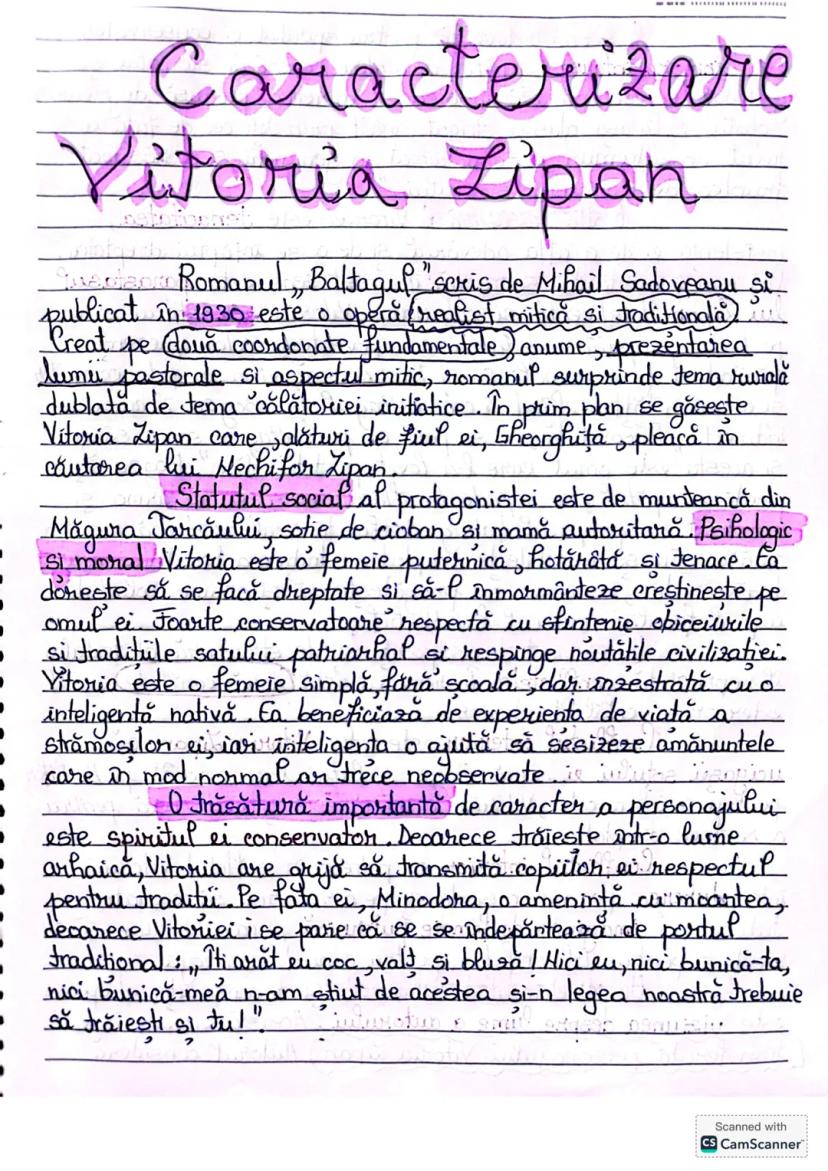 Caracterizare
Vitoria Lipan
Romanul „Baltagul" scris de Mihail Sadoveanu și
publicat în 1930 este o operă realist mitică și tradițională.
Creat pe două coordonate fundamentale, anume, prezentarea
lumii pastorale și aspectul mitic, romanul surprinde tema rurală
dublată de tema călătoriei inițiatice. În prim plan se găsește
Vitoria Lipan care, alături de fiul ei, Gheorghiță, pleacă în
căutarea lui Nechifor Lipan.
Statutul social al protagonistei este de munteancă din
Măgura Tarcăului, soție de cioban și mamă autoritară. Psihologic
și moral Vitoria este o femeie puternică, hotărâtă și tenace. Ea
dorește să se facă dreptate și să-l înmormânteze creștinește pe
omul ei. Foarte conservatoare respectă cu sfințenie obiceiurile
și tradițiile satului patriarhal și respinge noutățile civilizației.
Vitoria este o femeie simplă, fără școală, dar înzestrată cu o
inteligență nativă. Ea beneficiază de experiența de viață a
strămoșilor ei, iar inteligența o ajută să sesizeze amănuntele
care în mod normal ar trece neobservate.
O trăsătură importantă de caracter a personajului
este spiritul ei conservator. Deoarece trăiește într-o lume
arhaică, Vitoria are grijă să transmită copiilor ei respectul
pentru tradiții. Pe fata ei, Minodora, o amenință cu moartea,
deoarece Vitoriei i se pare că se se îndepărtează de portul
tradițional: „Îți arăt eu coc, valț și bluză! Nici eu, nici bunică-ta,
nici bunică-mea n-am știut de acestea și-n legea noastră trebuie
să trăiești și tu!".
Scanned with
CS CamScanner